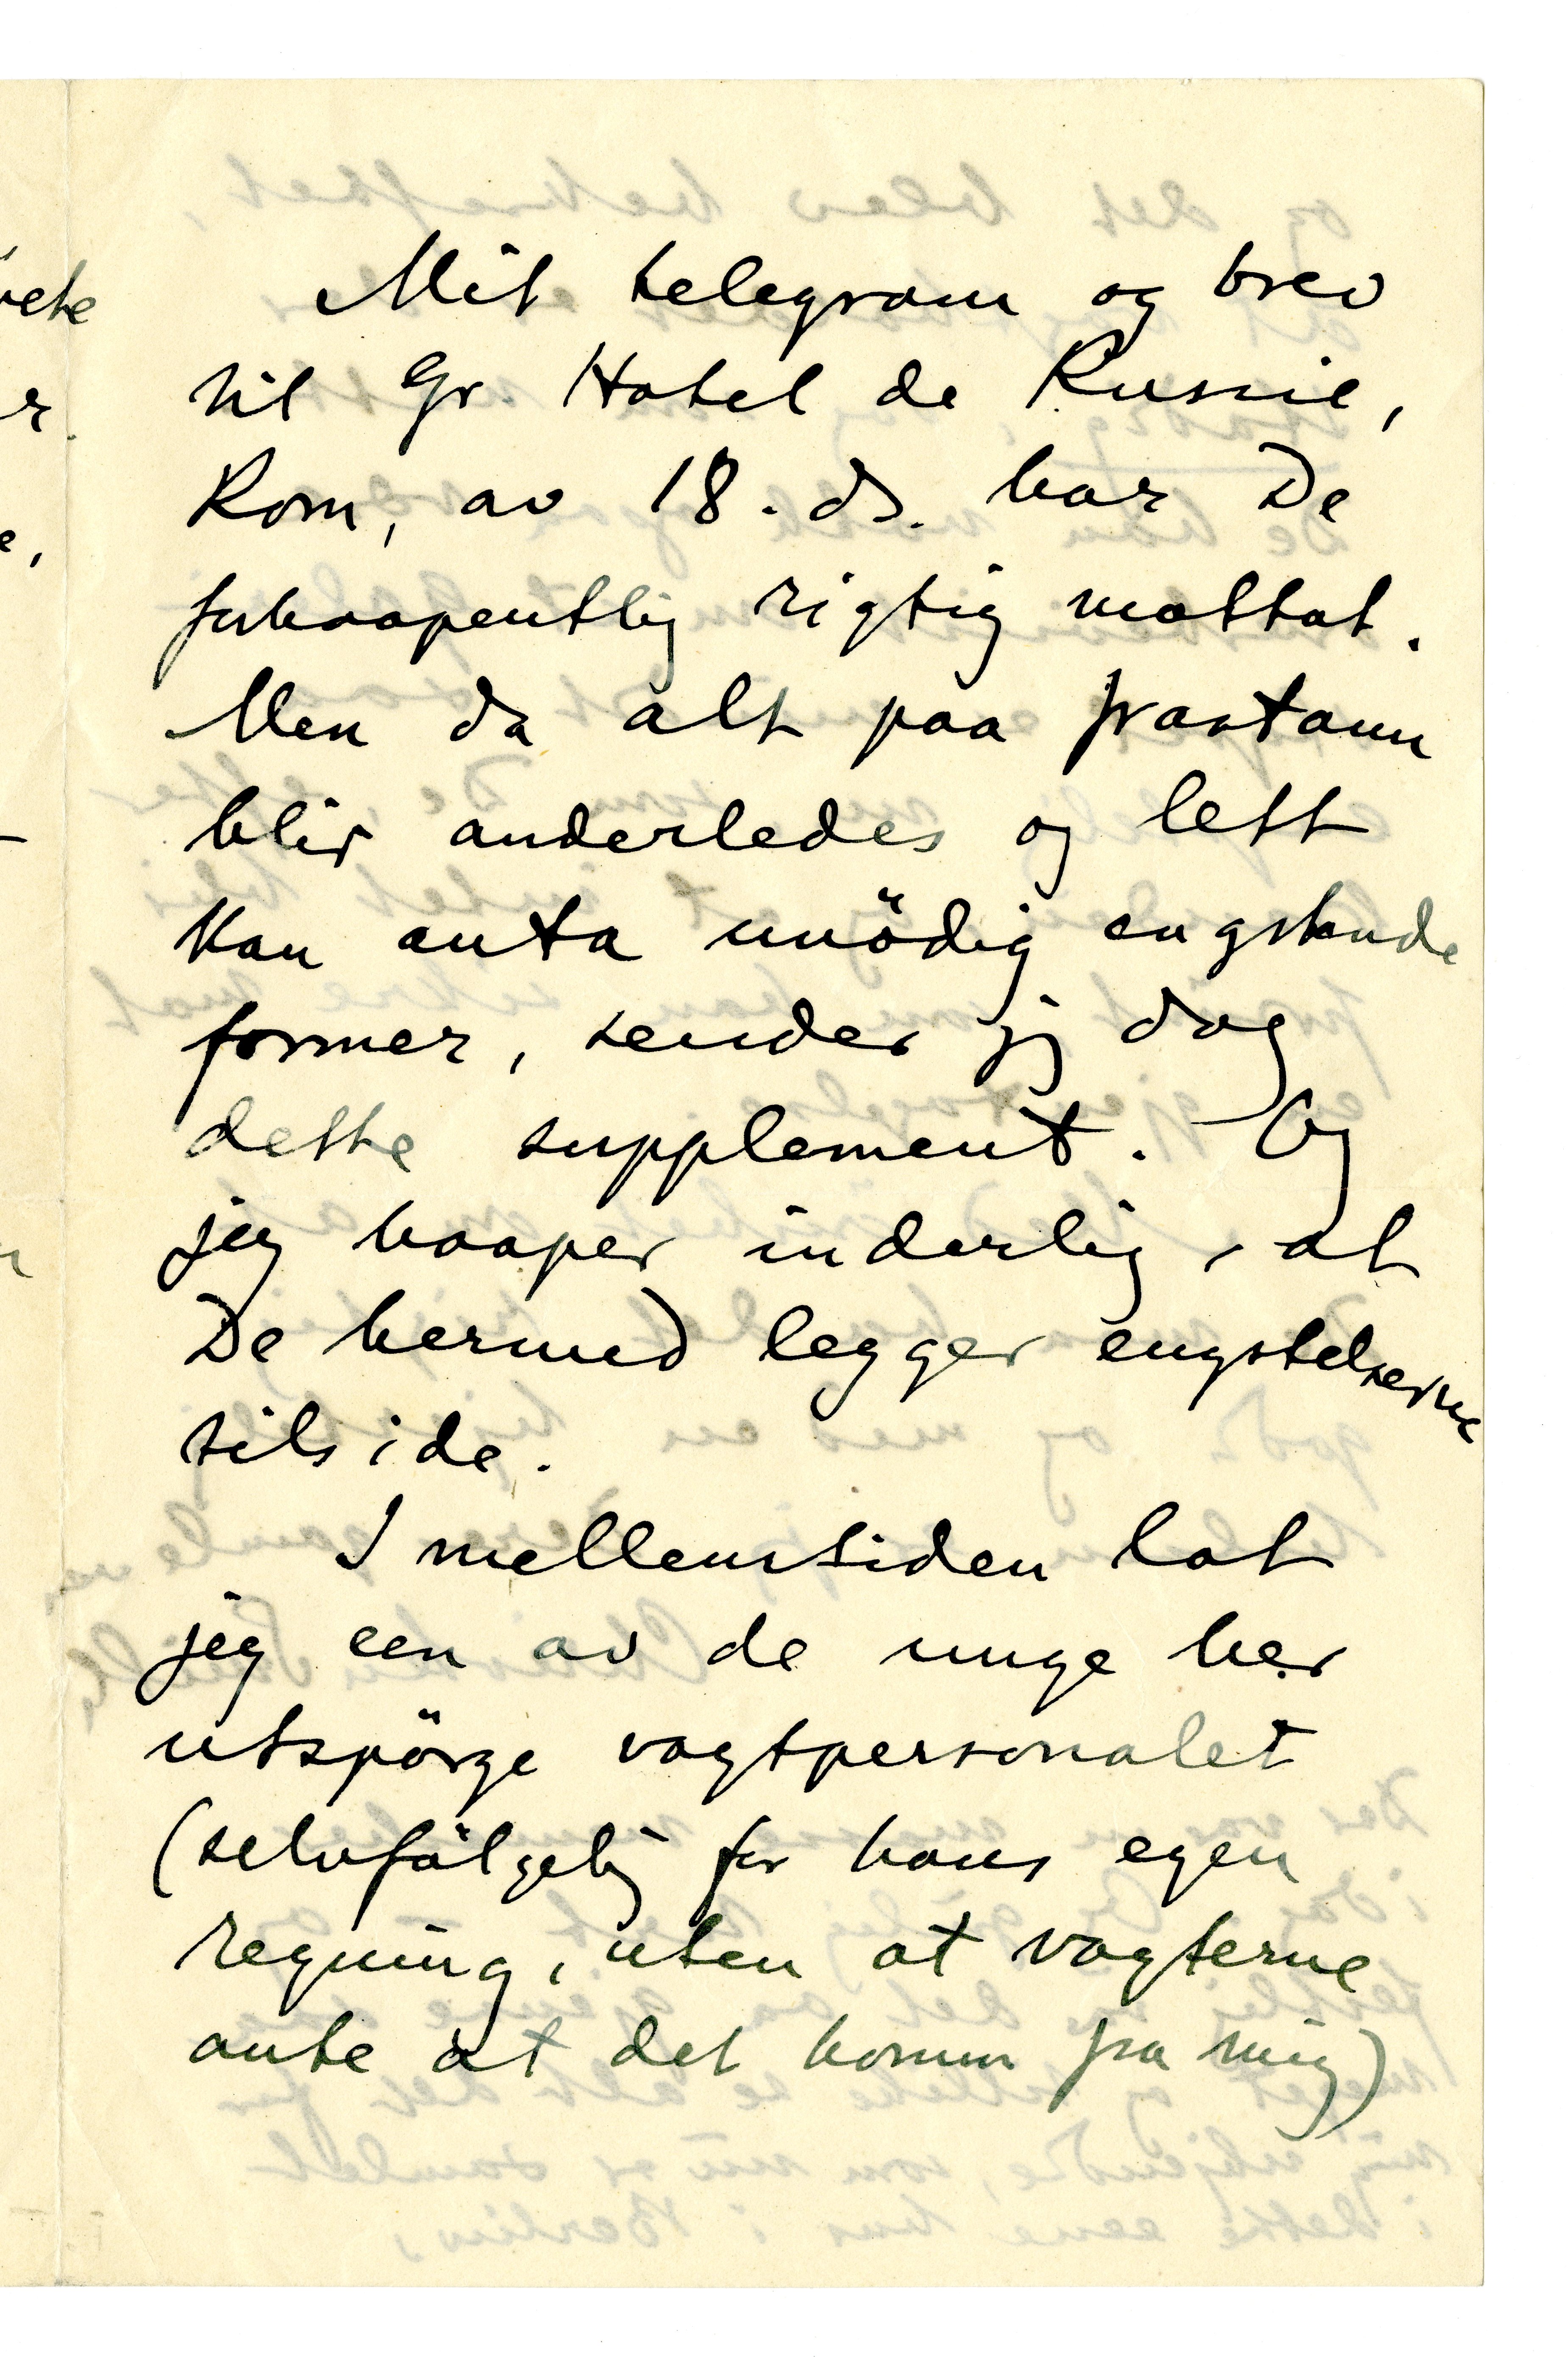 Mit telegram og brev
til Gr. Hotel de Russie,
Rom, av 18. ds. har De
forhaapentlig rigtig mottat.
Men da alt paa frastann
blir anderledes og lett
kan anta unödig engstende
former, sender jeg dog
dette supplement. Og
jeg haaper inderlig, at
De hermed legger engstelserne
tilside.
I mellemtiden lot
jeg een av de unge her
utspörge vagtpersonalet
(selvfölgelig for hans egen
regning, uten at vagterne
ante at det kommr fra mig)